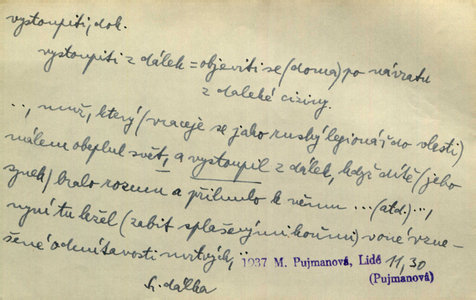 vystoupiti, dok.
vystoupiti z dálek = objeviti se (doma) po návratu
z daleké ciziny.
.., muž, který (vraceje se jako ruský legionář do vlasti)
málem obeplul svět, a vystoupil z dálek, když dítě (jeho
synek) bralo rozum a přilnulo k němu ... (atd.) ..,
nyní tu ležel (zabit splašenými koňmi) v oné vzne-
šené odmítavosti mrtvých, ..
1937 M. Pujmanová, Lidé 11, 30
(Pujmanová)
dálka